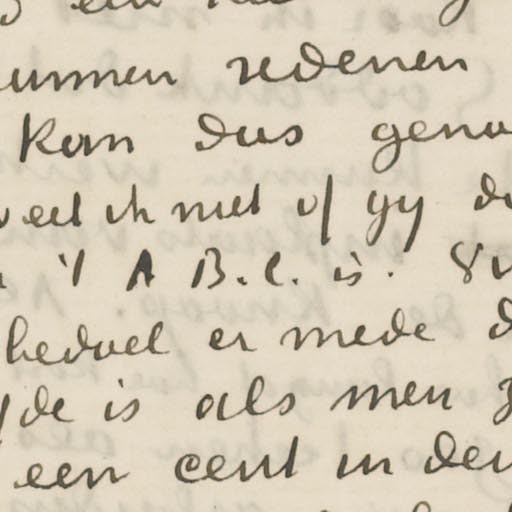 unnen redenen
kom dus geno
weet ik niet of gy di
't A B.C. is.
bedoel er mede d
yde is als men z
een cent in den